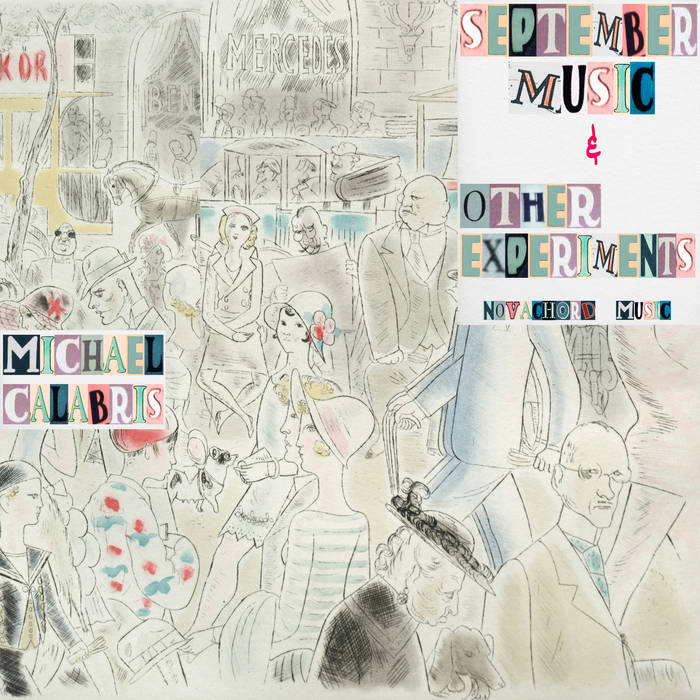 SEPTEMBER
MUSIC
&
OTHER
EXPERIMENTS
NOVACHORD MUSIC
MERCEDES
MICHAEL
CALABRIS